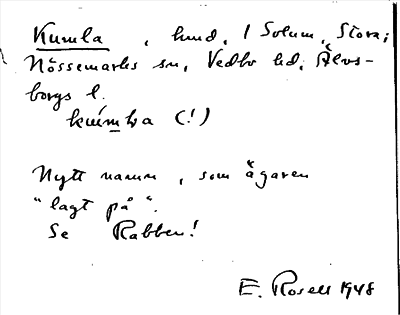 Kumla, hmd, 1 Solum, Stora,
Nössemarks sn, Vedbo hd, Älvs-
borgs l.
kùmla (!)
Nytt namn, som ägaren
"lagt på".
Se Rabben!
E. Rosell 1948